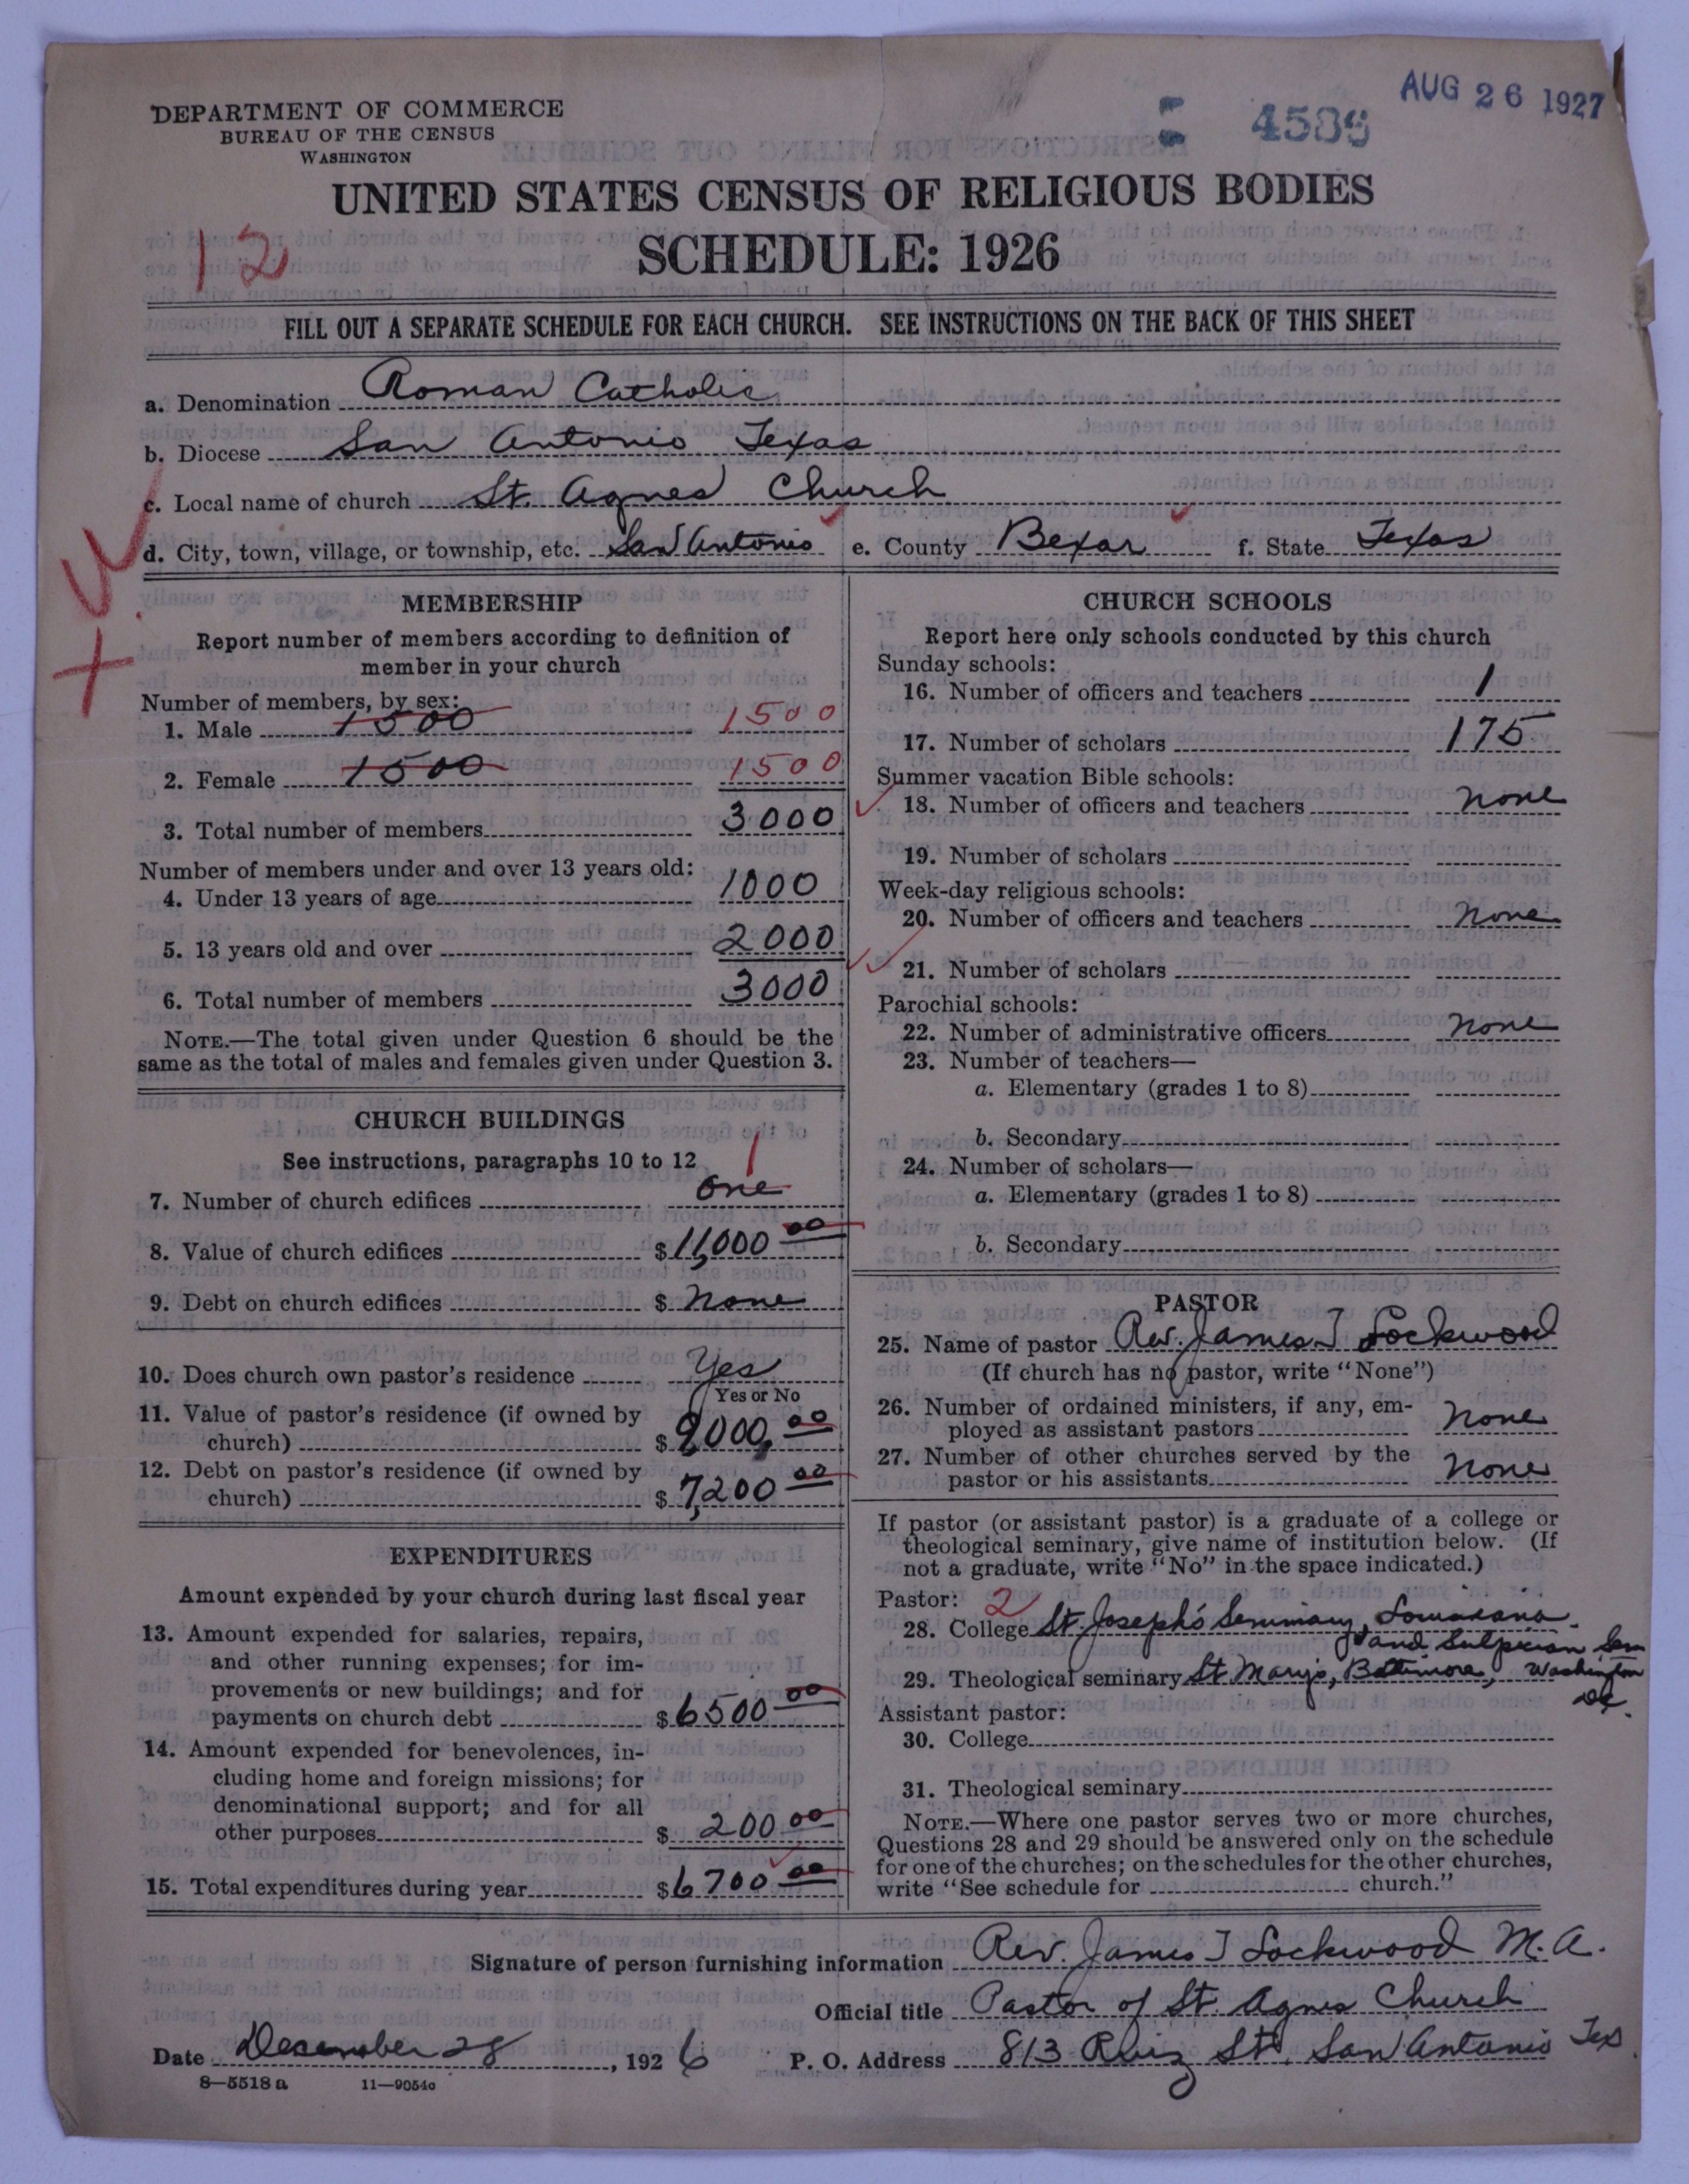 DEPARTMENT OF COMMERCE
BUREAU OF THE CENSUS
WASHINGTON
4586
AUG 26 1927
UNITED STATES CENSUS OF RELIGIOUS BODIES
SCHEDULE: 1926
12
FILL OUT A SEPARATE SCHEDULE FOR EACH CHURCH. SEE INSTRUCTIONS ON THE BACK OF THIS SHEET
a. Denomination Roman Catholic
b. Diocese San Antonio Texas
c. Local name of church St. Agnes Church
d. City, town, village, or township, etc. San Antonio e. County Bexar f. State Texas
MEMBERSHIP
Report number of members according to definition of
member in your church
Number of members, by sex:
1. Male 1500 1500
2. Female 1500 1500
3. Total number of members 3000
Number of members under and over 13 years old:
4. Under 13 years of age 1000
5. 13 years old and over 2000
6. Total number of members 3000
NOTE.—The total given under Question 6 should be the
same as the total of males and females given under Question 3.
CHURCH BUILDINGS
See instructions, paragraphs 10 to 12
1
7. Number of church edifices one
8. Value of church edifices $11,000 00
9. Debt on church edifices $ none
10. Does church own pastor's residence Yes
Yes or No
11. Value of pastor's residence (if owned by
church) $9000, 00
12. Debt on pastor's residence (if owned by
church) $7,200 00
EXPENDITURES
Amount expended by your church during last fiscal year
13. Amount expended for salaries, repairs,
and other running expenses; for im-
provements or new buildings; and for
payments on church debt $6500 00
14. Amount expended for benevolences, in-
cluding home and foreign missions; for
denominational support; and for all
other purposes $ 200 00
15. Total expenditures during year $6700 00
CHURCH SCHOOLS
Report here only schools conducted by this church
Sunday schools:
16. Number of officers and teachers 1
17. Number of scholars 175
Summer vacation Bible schools:
18. Number of officers and teachers none
19. Number of scholars
Week-day religious schools:
20. Number of officers and teachers none
21. Number of scholars
Parochial schools:
22. Number of administrative officers none
23. Number of teachers—
a. Elementary (grades 1 to 8)
b. Secondary
24. Number of scholars—
a. Elementary (grades 1 to 8)
b. Secondary
PASTOR
25. Name of pastor Rev. James T Lockwood
(If church has no pastor, write "None")
26. Number of ordained ministers, if any, em-
ployed as assistant pastors none
27. Number of other churches served by the
pastor or his assistants none
If pastor (or assistant pastor) is a graduate of a college or
theological seminary, give name of institution below. (If
not a graduate, write "No" in the space indicated.)
Pastor: 2
28. College St. Joseph's Seminary, Louisiana.
and Sulpician Sem
29. Theological seminary St Mary's, Baltimore, Washington
DC.
Assistant pastor:
30. College
31. Theological seminary
NOTE.—Where one pastor serves two or more churches,
Questions 28 and 29 should be answered only on the schedule
for one of the churches; on the schedules for the other churches,
write "See schedule for church."
Signature of person furnishing information Rev. James T Lockwood M.A.
Official title Pastor of St. Agnes Church
Date December 28, 1926 P. O. Address 813 Ruiz St. San Antonio Tex.
8—5518 a 11—9054c